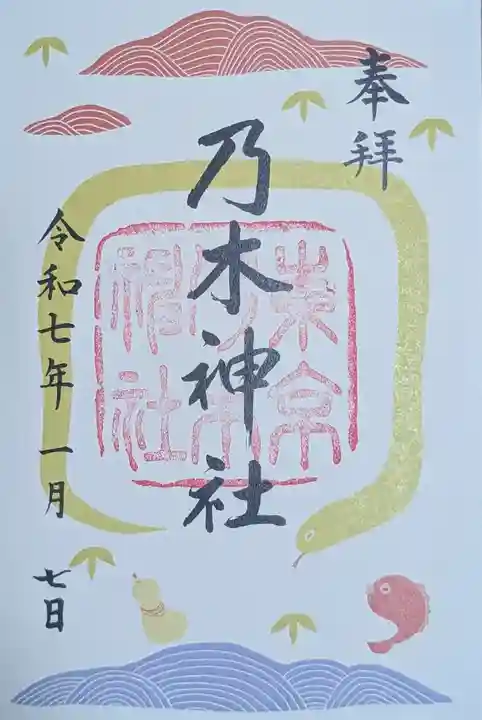 奉拝
乃木神社
東京
乃木
神社
令和七年 一月 七日